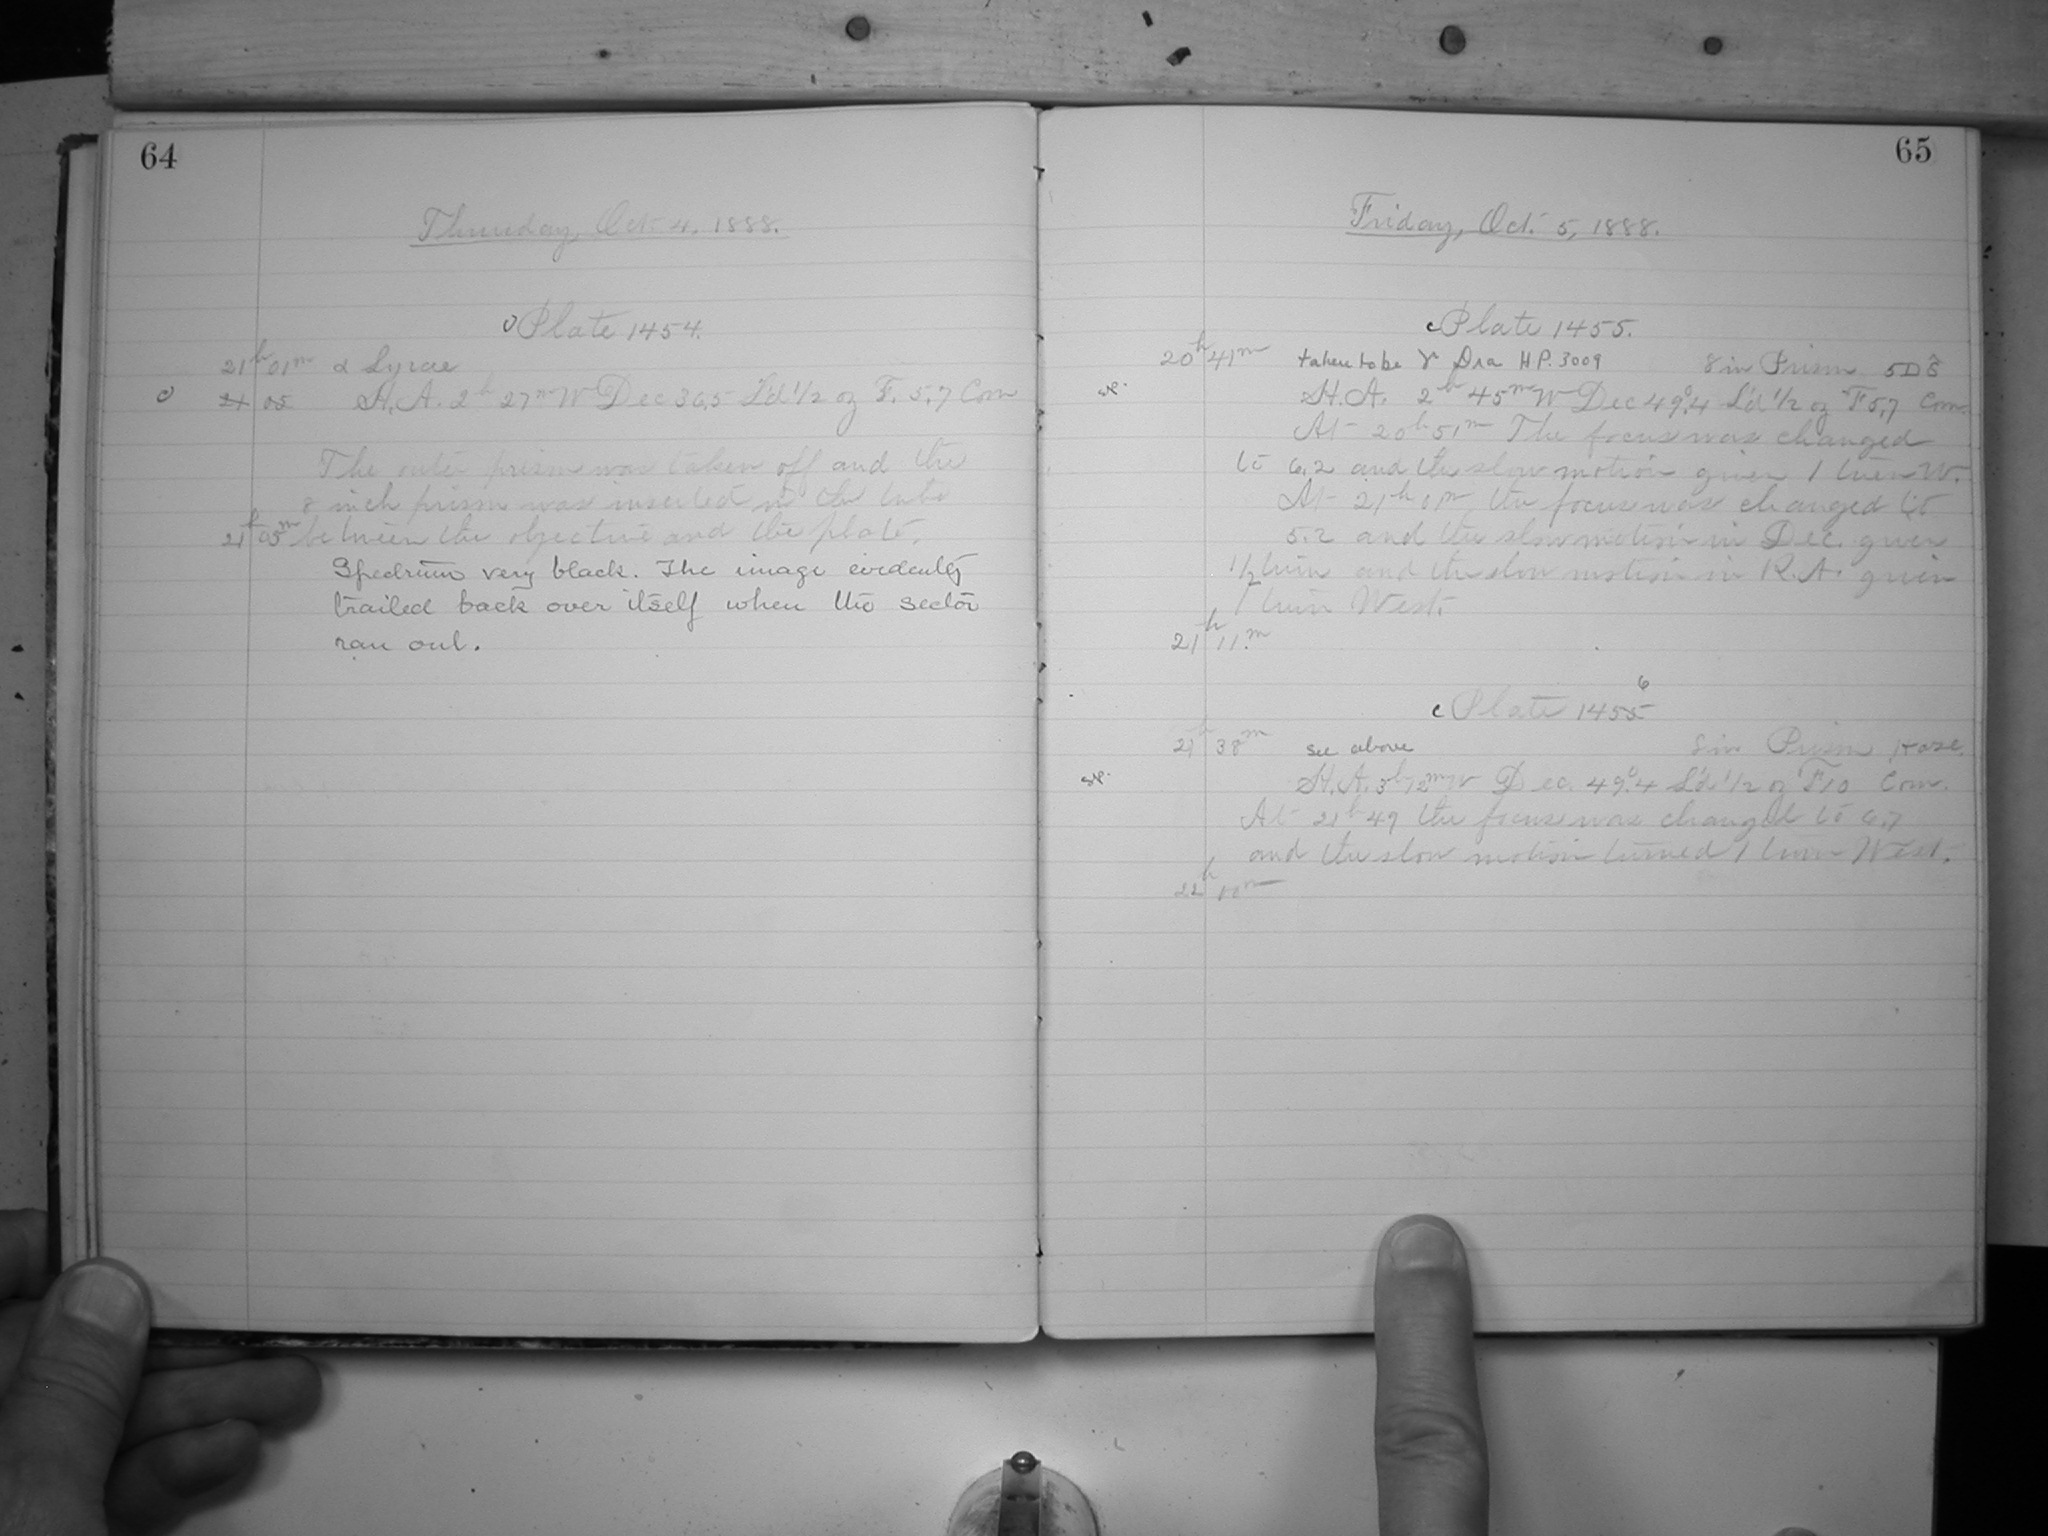 64
Thursday, Oct 4, 1888.
c Plate 1454.
21h 01m α Lyrae
c 21 05 H.A. 2h 27m W Dec 36,5 L'd 1/2 oz F. 5,7 Com
The outer prism was taken off and the
8 inch prism was inserted in the tube
21h 05m between the objective and the plate.
Spectrum very black. The image evidently
trailed back over itself when the sector
ran out.
65
Friday, Oct. 5, 1888.
c Plate 1455.
20h 41m taken to be γ Dra H.P. 3009 8 in Prism
sp. H.A. 2h 45m W Dec 49°.4 L'd 1/2 oz F 5,7 Com.
At 20h 51m The focus was changed
to 6.2 and the slow motion given 1 turn W.
At 21h 01m the focus was changed to
5.2 and the slow motion in Dec. given
1/2 turn and the slow motion in R.A. given
1 turn West.
21h 11m
6
c Plate 1455
21h 38m see above 8 in Prism Haze.
sp. H.A. 3h 12m W Dec. 49°.4 L'd 1/2 oz F 10 Com.
At 21h 49 the focus was changed to 6.7
and the slow motion turned 1 turn West.
22h 00m